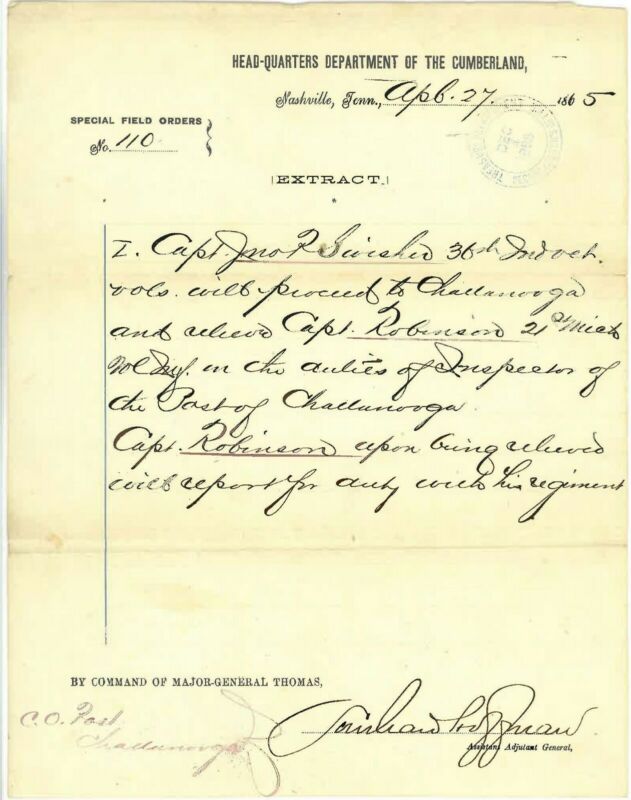 HEAD-QUARTERS DEPARTMENT OF THE CUMBERLAND,
Nashville, Tenn., Apl. 27 1865
SPECIAL FIELD ORDERS
No. 110
EXTRACT.
*
I. Capt. Jno F Swisher 36th Ind vet.
vols. will proceed to Chattanooga
and relieve Capt. Robinson 21st Mich
Vol Inf. in the duties of Inspector of
the Post of Chattanooga.
Capt. Robinson upon being relieved
will report for duty with his regiment
BY COMMAND OF MAJOR-GENERAL THOMAS,
C.O. Post
Chattanooga
Assistant Adjutant General,